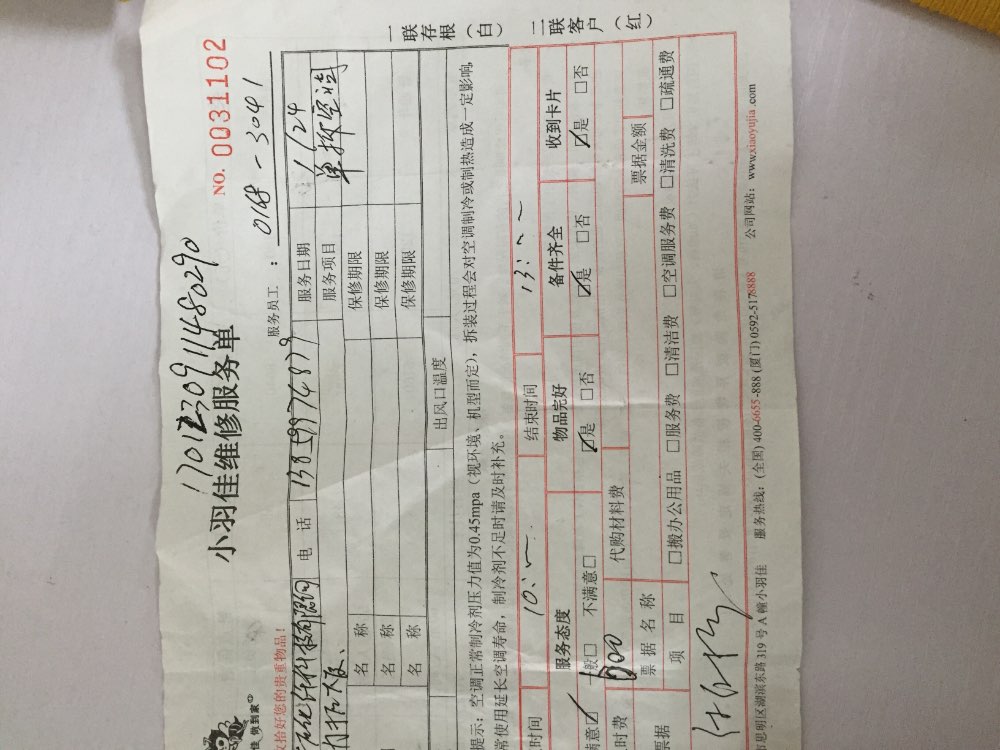 NO. 0031102
1701230911480290
小羽佳维修服务单
服务员工： 0168-3041
拾好您的贵重物品！
科技有限公司 电 话 13859974879 服务日期 1/24
服务项目 单拆空调
名 称 保修期限
名 称 保修期限
名 称 保修期限
出风口温度
提示：空调正常制冷剂压力值为0.45mpa（视环境、机型而定），拆装过程会对空调制冷或制热造成一定影响，
常使用延长空调寿命，制冷剂不足时请及时补充。
时间 10: 结束时间 13:
服务态度 物品完好 备件齐全 收到卡片
满意☑ 一般□ 不满意□ ☑是 □否 ☑是 □否 ☑是 □否
时费 代购材料费
票据 票 据 名 称 票据金额
项 目 □搬办公用品 □服务费 □清洁费 □空调服务费 □清洗费 □疏通费
市思明区湖滨东路 319 号 A 幢小羽佳 服务热线：(全国) 400-6655-888 (厦门) 0592-5178888 公司网站：www.xiaoyujia.com
一联存根（白）
二联客户（红）